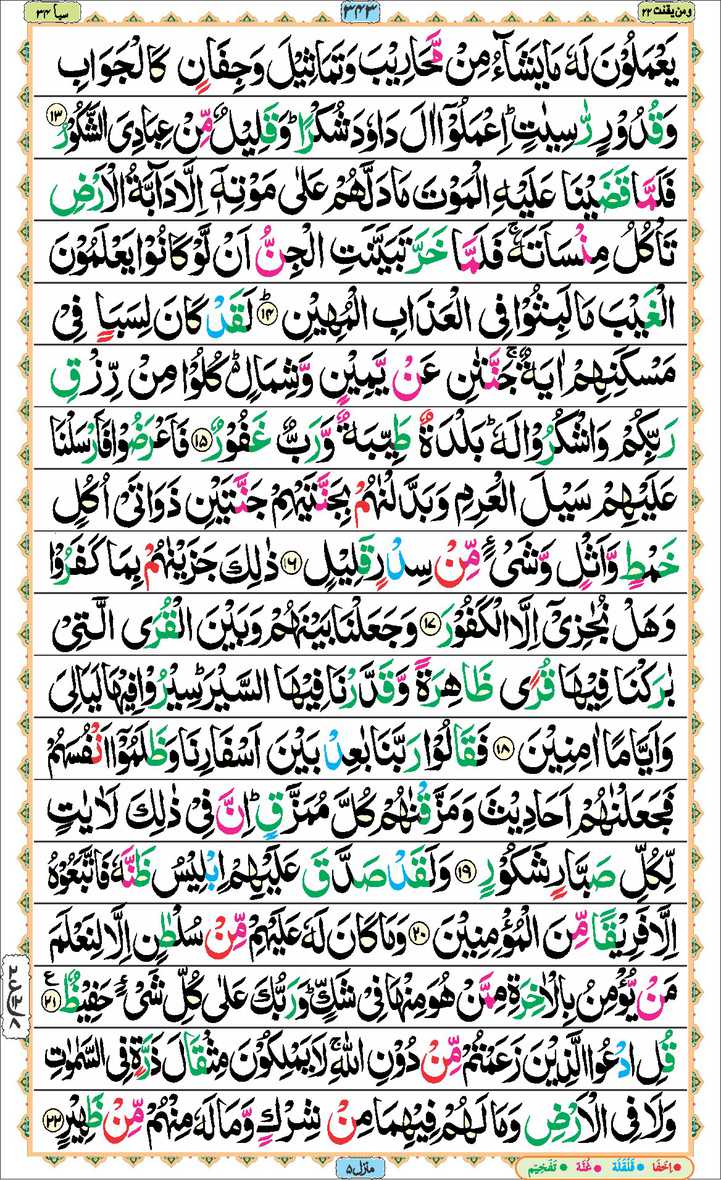 ومن یقنت ۲۲
۳۴۳
سبا ۳۴
یَعْمَلُوْنَ لَهٗ مَا یَشَآءُ مِنْ مَّحَارِیْبَ وَتَمَاثِیْلَ وَجِفَانٍ كَالْجَوَابِ
وَقُدُوْرٍ رّٰسِیٰتٍ ؕ اِعْمَلُوْۤا اٰلَ دَاوٗدَ شُكْرًا ؕ وَقَلِیْلٌ مِّنْ عِبَادِیَ الشَّكُوْرُ ۝۱۳
فَلَمَّا قَضَیْنَا عَلَیْهِ الْمَوْتَ مَا دَلَّهُمْ عَلٰی مَوْتِهٖۤ اِلَّا دَآبَّةُ الْاَرْضِ
تَاْكُلُ مِنْسَاَتَهٗ ۚ فَلَمَّا خَرَّ تَبَیَّنَتِ الْجِنُّ اَنْ لَّوْ كَانُوْا یَعْلَمُوْنَ
الْغَیْبَ مَا لَبِثُوْا فِی الْعَذَابِ الْمُهِیْنِ ؕ۝۱۴ لَقَدْ كَانَ لِسَبَاٍ فِیْ
مَسْكَنِهِمْ اٰیَةٌ ۚ جَنَّتٰنِ عَنْ یَّمِیْنٍ وَّشِمَالٍ ؕ۬ كُلُوْا مِنْ رِّزْقِ
رَبِّكُمْ وَاشْكُرُوْا لَهٗ ؕ بَلْدَةٌ طَیِّبَةٌ وَّرَبٌّ غَفُوْرٌ ۝۱۵ فَاَعْرَضُوْا فَاَرْسَلْنَا
عَلَیْهِمْ سَیْلَ الْعَرِمِ وَبَدَّلْنٰهُمْ بِجَنَّتَیْهِمْ جَنَّتَیْنِ ذَوَاتَیْ اُكُلٍ
خَمْطٍ وَّاَثْلٍ وَّشَیْءٍ مِّنْ سِدْرٍ قَلِیْلٍ ۝۱۶ ذٰلِكَ جَزَیْنٰهُمْ بِمَا كَفَرُوْا ؕ
وَهَلْ نُجٰزِیْۤ اِلَّا الْكَفُوْرَ ۝۱۷ وَجَعَلْنَا بَیْنَهُمْ وَبَیْنَ الْقُرَی الَّتِیْ
بٰرَكْنَا فِیْهَا قُرًی ظَاهِرَةً وَّقَدَّرْنَا فِیْهَا السَّیْرَ ؕ سِیْرُوْا فِیْهَا لَیَالِیَ
وَاَیَّامًا اٰمِنِیْنَ ۝۱۸ فَقَالُوْا رَبَّنَا بٰعِدْ بَیْنَ اَسْفَارِنَا وَظَلَمُوْۤا اَنْفُسَهُمْ
فَجَعَلْنٰهُمْ اَحَادِیْثَ وَمَزَّقْنٰهُمْ كُلَّ مُمَزَّقٍ ؕ اِنَّ فِیْ ذٰلِكَ لَاٰیٰتٍ
لِّكُلِّ صَبَّارٍ شَكُوْرٍ ۝۱۹ وَلَقَدْ صَدَّقَ عَلَیْهِمْ اِبْلِیْسُ ظَنَّهٗ فَاتَّبَعُوْهُ
اِلَّا فَرِیْقًا مِّنَ الْمُؤْمِنِیْنَ ۝۲۰ وَمَا كَانَ لَهٗ عَلَیْهِمْ مِّنْ سُلْطٰنٍ اِلَّا لِنَعْلَمَ
مَنْ یُّؤْمِنُ بِالْاٰخِرَةِ مِمَّنْ هُوَ مِنْهَا فِیْ شَكٍّ ؕ وَرَبُّكَ عَلٰی كُلِّ شَیْءٍ حَفِیْظٌ ۝۲۱ ع
قُلِ ادْعُوا الَّذِیْنَ زَعَمْتُمْ مِّنْ دُوْنِ اللّٰهِ ۚ لَا یَمْلِكُوْنَ مِثْقَالَ ذَرَّةٍ فِی السَّمٰوٰتِ
وَلَا فِی الْاَرْضِ وَمَا لَهُمْ فِیْهِمَا مِنْ شِرْكٍ وَّمَا لَهٗ مِنْهُمْ مِّنْ ظَهِیْرٍ ۝۲۲
منزل ۵
اِخفَا • قَلقَلَة • غُنَّة • تَفخِیم